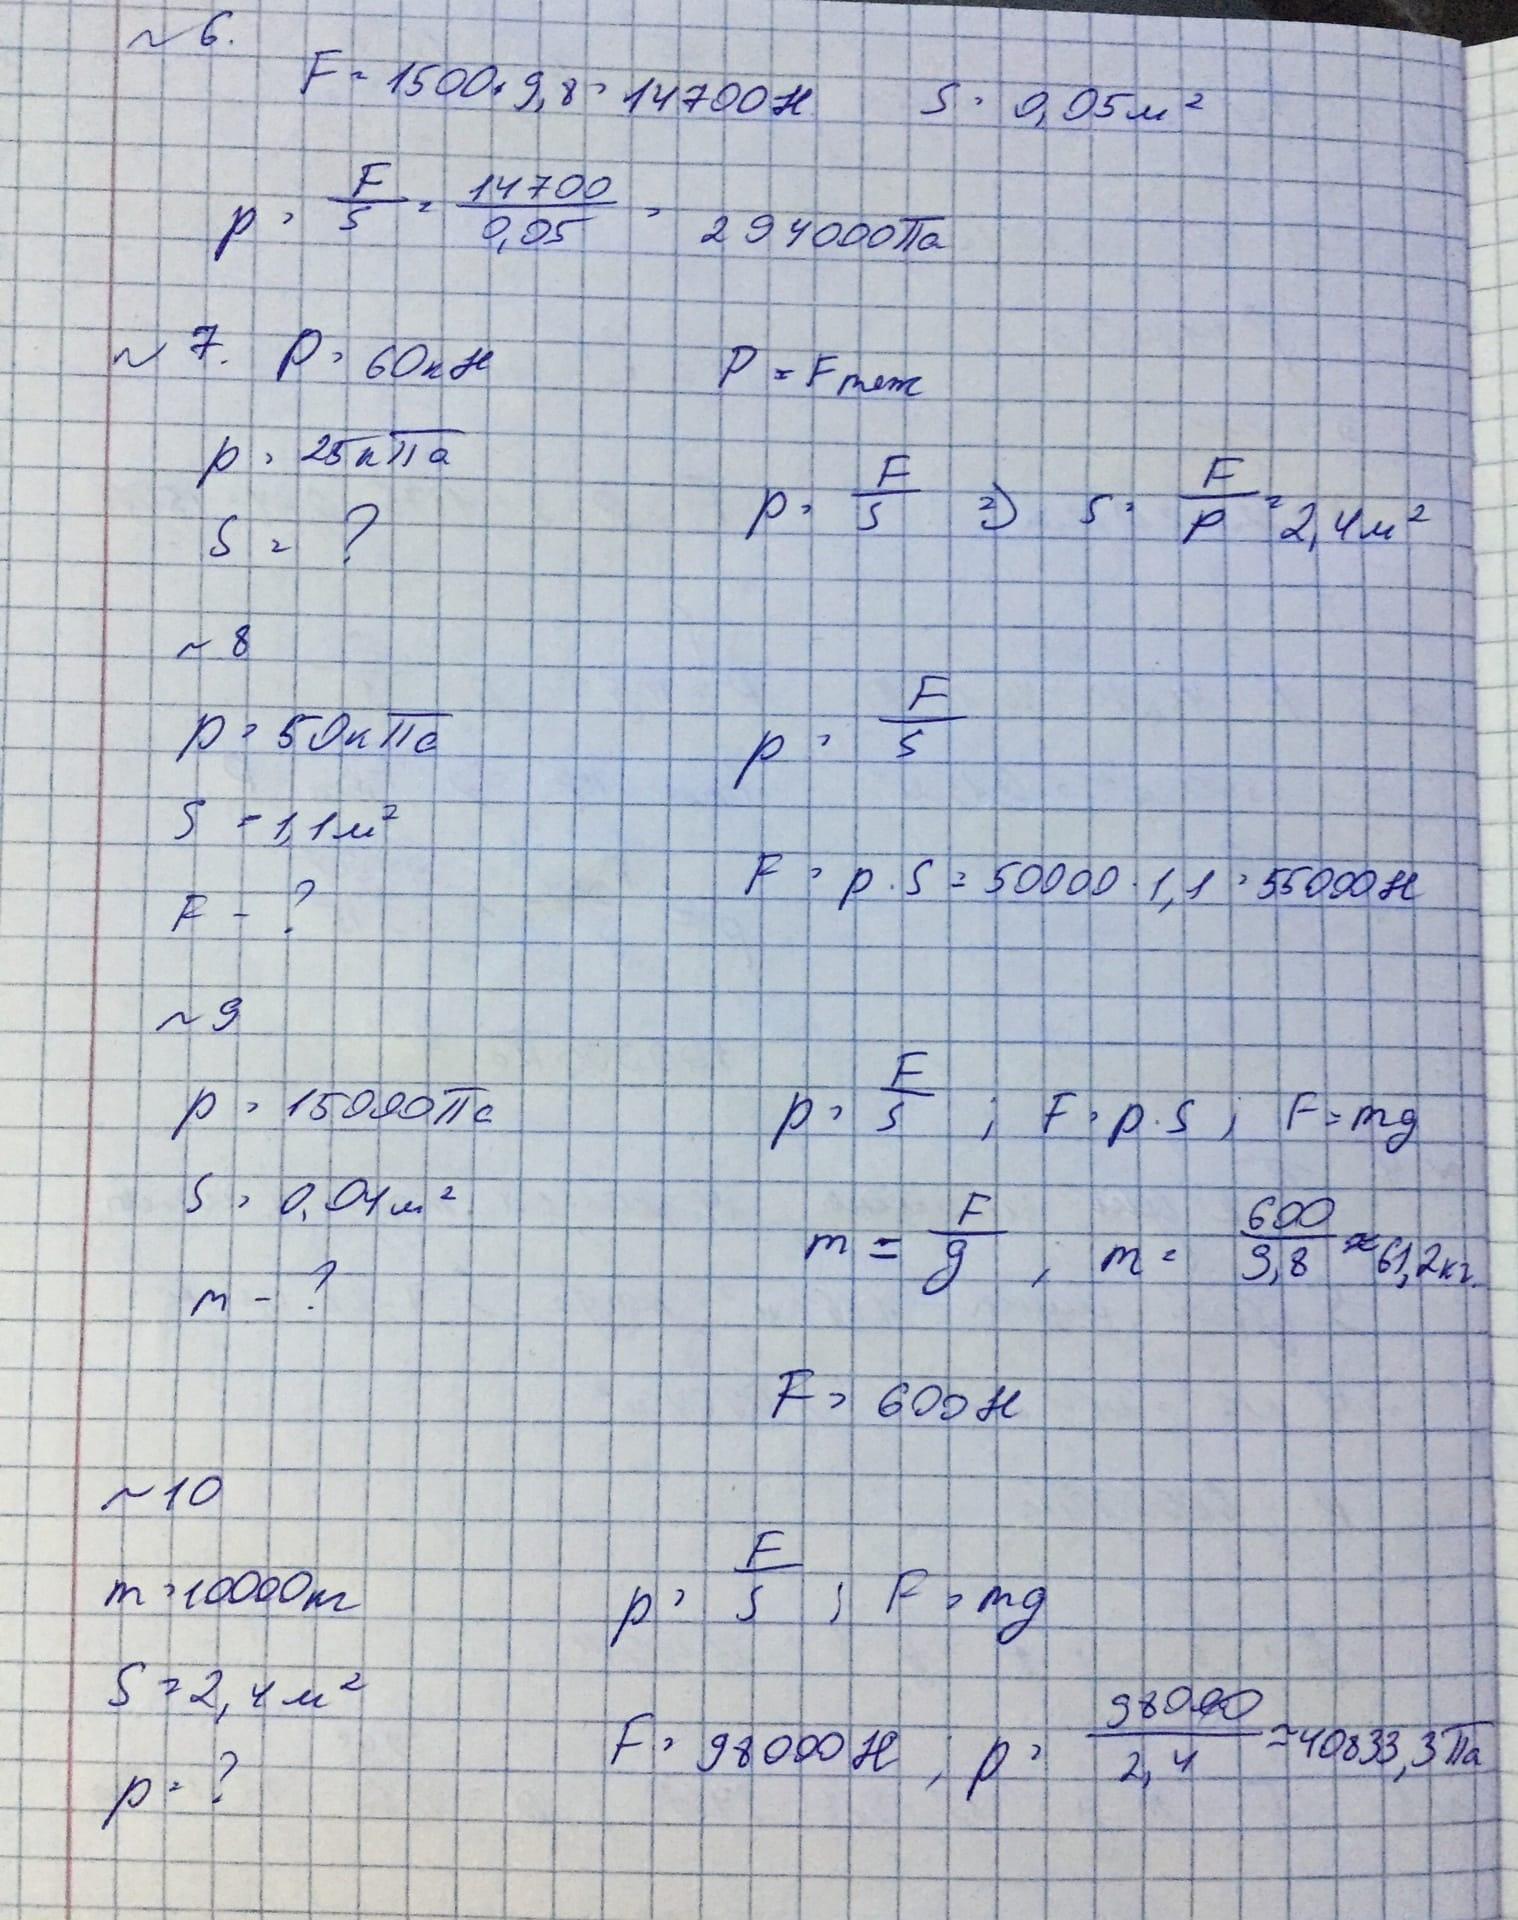 № 6.
F = 1500 · 9,8 = 14700 Н   S = 0,05 м²
p = F/S = 14700/0,05 = 294000 Па
№ 7. P = 60 кН   P = Fтяж
p = 25 кПа   p = F/S => S = F/p = 2,4 м²
S = ?
№ 8
p = 50 кПа   p = F/S
S = 1,1 м²
F - ?   F = p · S = 50000 · 1,1 = 55000 Н
№ 9
p = 15000 Па   p = F/S ; F = p · S ; F = mg
S = 0,04 м²   m = F/g ; m = 600/9,8 ≈ 61,2 кг.
m - ?
F = 600 Н
№ 10
m = 10000 кг   p = F/S ; F = mg
S = 2,4 м²   F = 98000 Н ; p = 98000/2,4 ≈ 40833,3 Па
p = ?